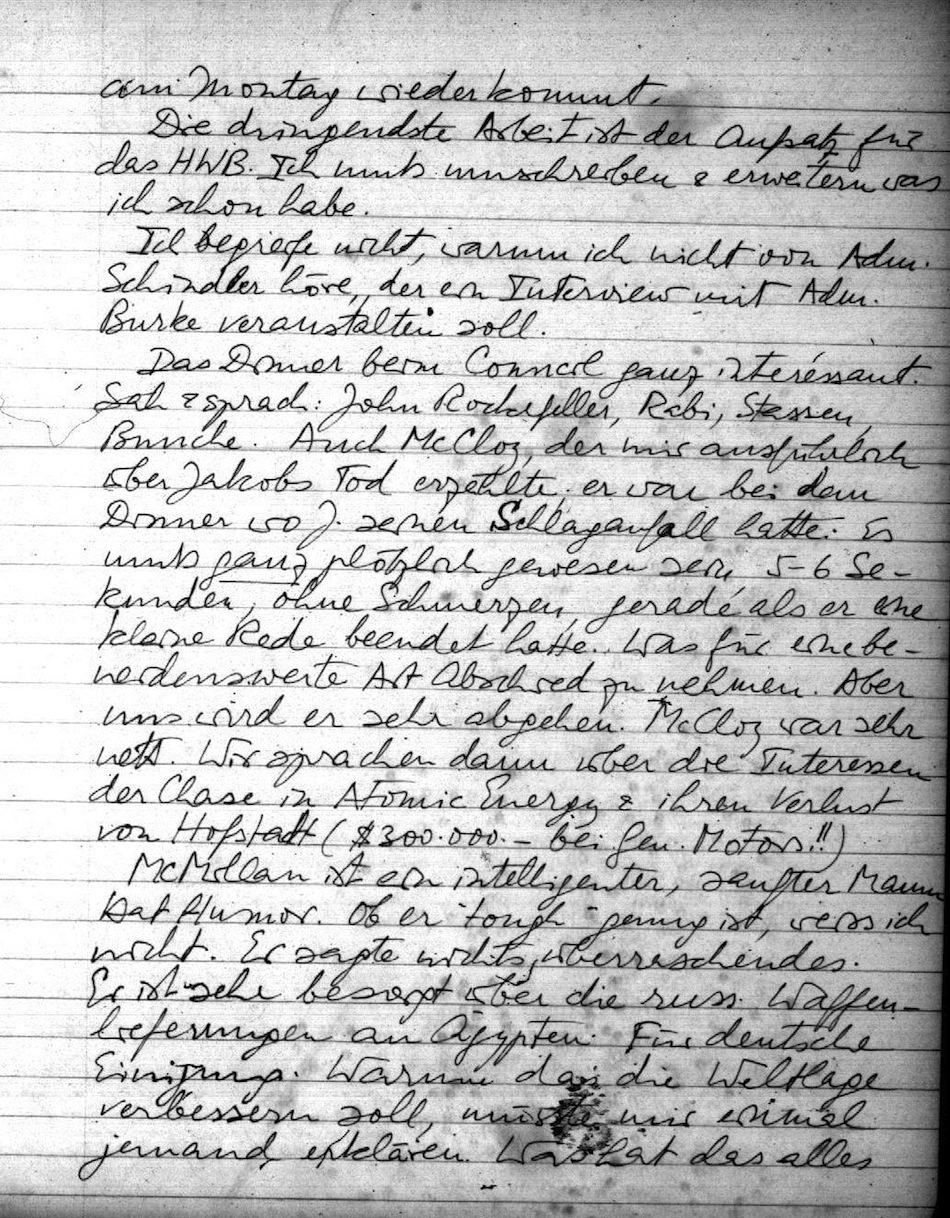 am Montag wiederkommt.
Die dringendste Arbeit ist der Aufsatz für
das HWB. Ich muß umschreiben & erweitern was
ich schon habe.
Ich begreife nicht, warum ich nicht von Adm.
Schindler höre, der ein Interview mit Adm.
Burke veranstalten soll.
Das Dinner beim Council ganz interessant.
Sah & sprach: John Rockefeller, Rabi, Stassen,
Bunche. Auch McCloy, der mir ausführlich
über Jakobs Tod erzählte; er war bei dem
Dinner wo J. seinen Schlaganfall hatte. Es
muß ganz plötzlich gewesen sein, 5-6 Se-
kunden, ohne Schmerzen, gerade als er eine
kleine Rede beendet hatte. Was für eine be-
neidenswerte Art Abschied zu nehmen. Aber
uns wird er sehr abgehen. McCloy war sehr
nett. Wir sprachen dann über die Interessen
der Chase in Atomic Energy & ihren Verlust
von Hofstadt ($300.000.– bei Gen. Motors!!)
McMillan ist ein intelligenter, sanfter Mann
Hat Humor. Ob er "tough" genug ist, weiss ich
nicht. Er sagte nichts überraschendes.
Er ist sehr besorgt über die russ. Waffen-
lieferungen an Ägypten. Für deutsche
Einigung. Warum das die Weltlage
verbessern soll, müsste mir einmal
jemand erklären. Was hat das alles